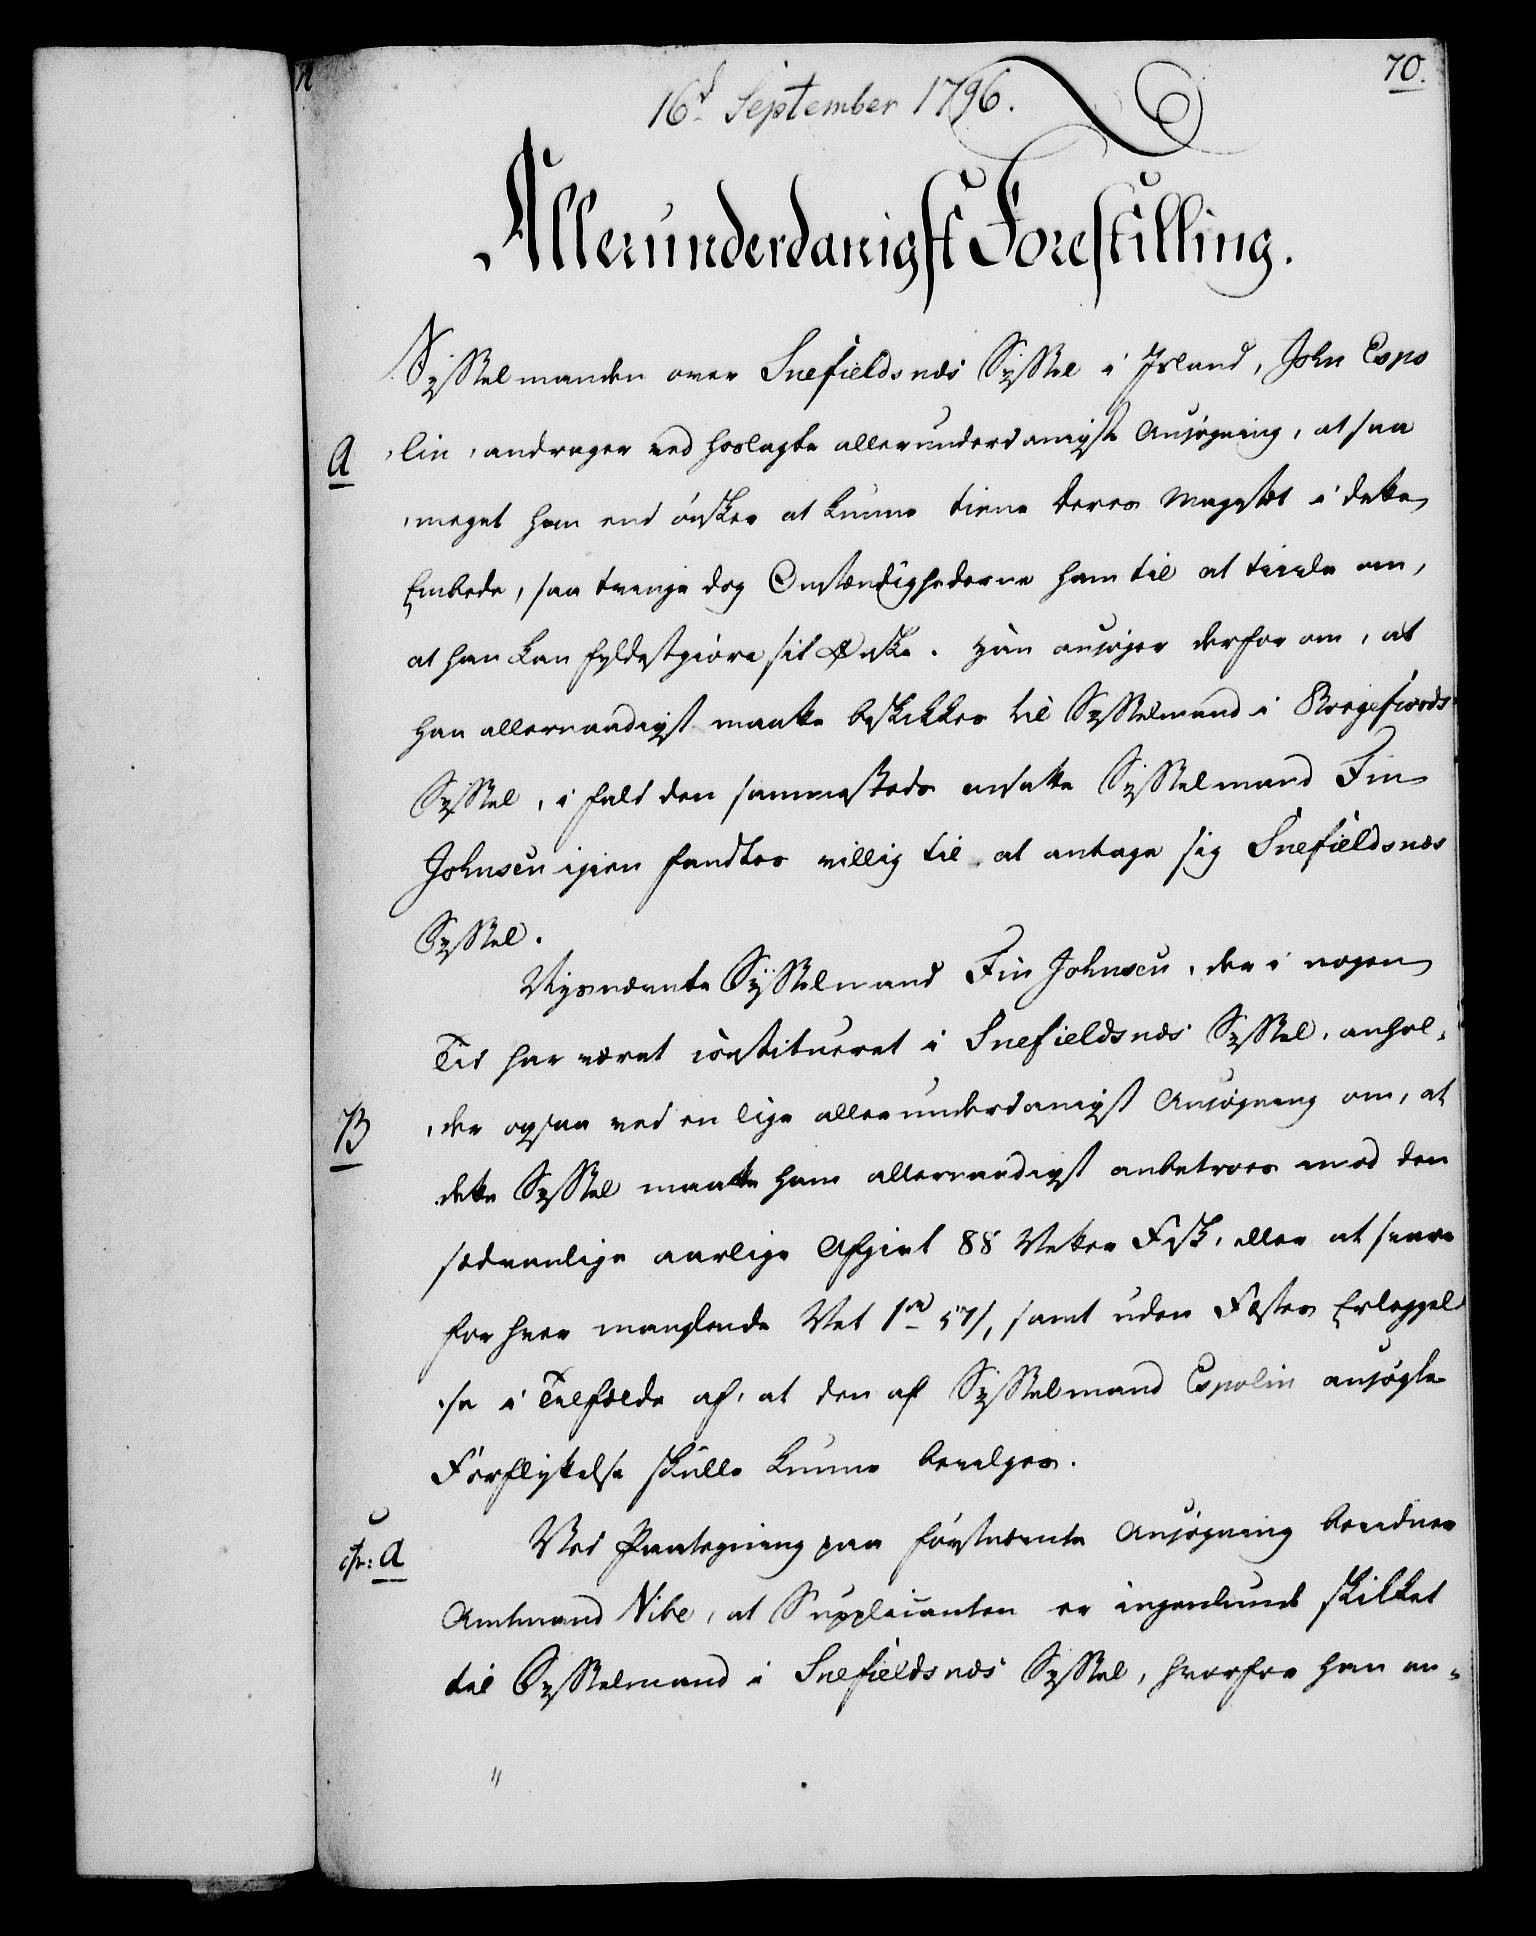 70.
16d September 1796.
Allerunderdanigst Forestilling.
Sysselmanden over Snefieldsnæs Syssel i Island, John Espo
A
lin, andrager ved hoslagte allerunderdanigste Ansøgning, at saa
meget han end ønsker at kunne tiene Deres Majestæt i dette
Embede, saa tvinge dog Omstændighederne ham til at tivle om,
at han kan fyldestgiøre sit Ønske. Han ansøger derfor om, at
han allernaadigst maatte beskikkes til Sysselmand i Borgefiords
Syssel, i fald den sammesteds ansatte Sysselmand Fin
Johnsen igien fandtes villig til at antage sig Snefieldsnæs
Syssel.
Nysnævnte Sysselmand Fin Johnsen, der i nogen
Tid har været constitueret i Snefieldsnæs Syssel, anhol-
B
der ogsaa ved en lige allerunderdanigst Ansøgning om, at
dette Syssel maatte ham allernaadigst anbetroes mod den
sædvanlige aarlige Afgivt 88 Vetter Fisk, eller at svare
for hver manglende Vet 1rd 57/, samt uden Fæstes Erleggel
se i Tilfælde af, at den af Sysselmand Espolin ansøgte
Forflyttelse skulle kunne bevilges.
cfr: A
Ved Paategning paa førstnævnte Ansøgning beretner
Amtmand Vibe, at Supplicanten er ingenlunde skikket
til Sysselmand i Snefieldsnæs Syssel, hvorfor han an-
"